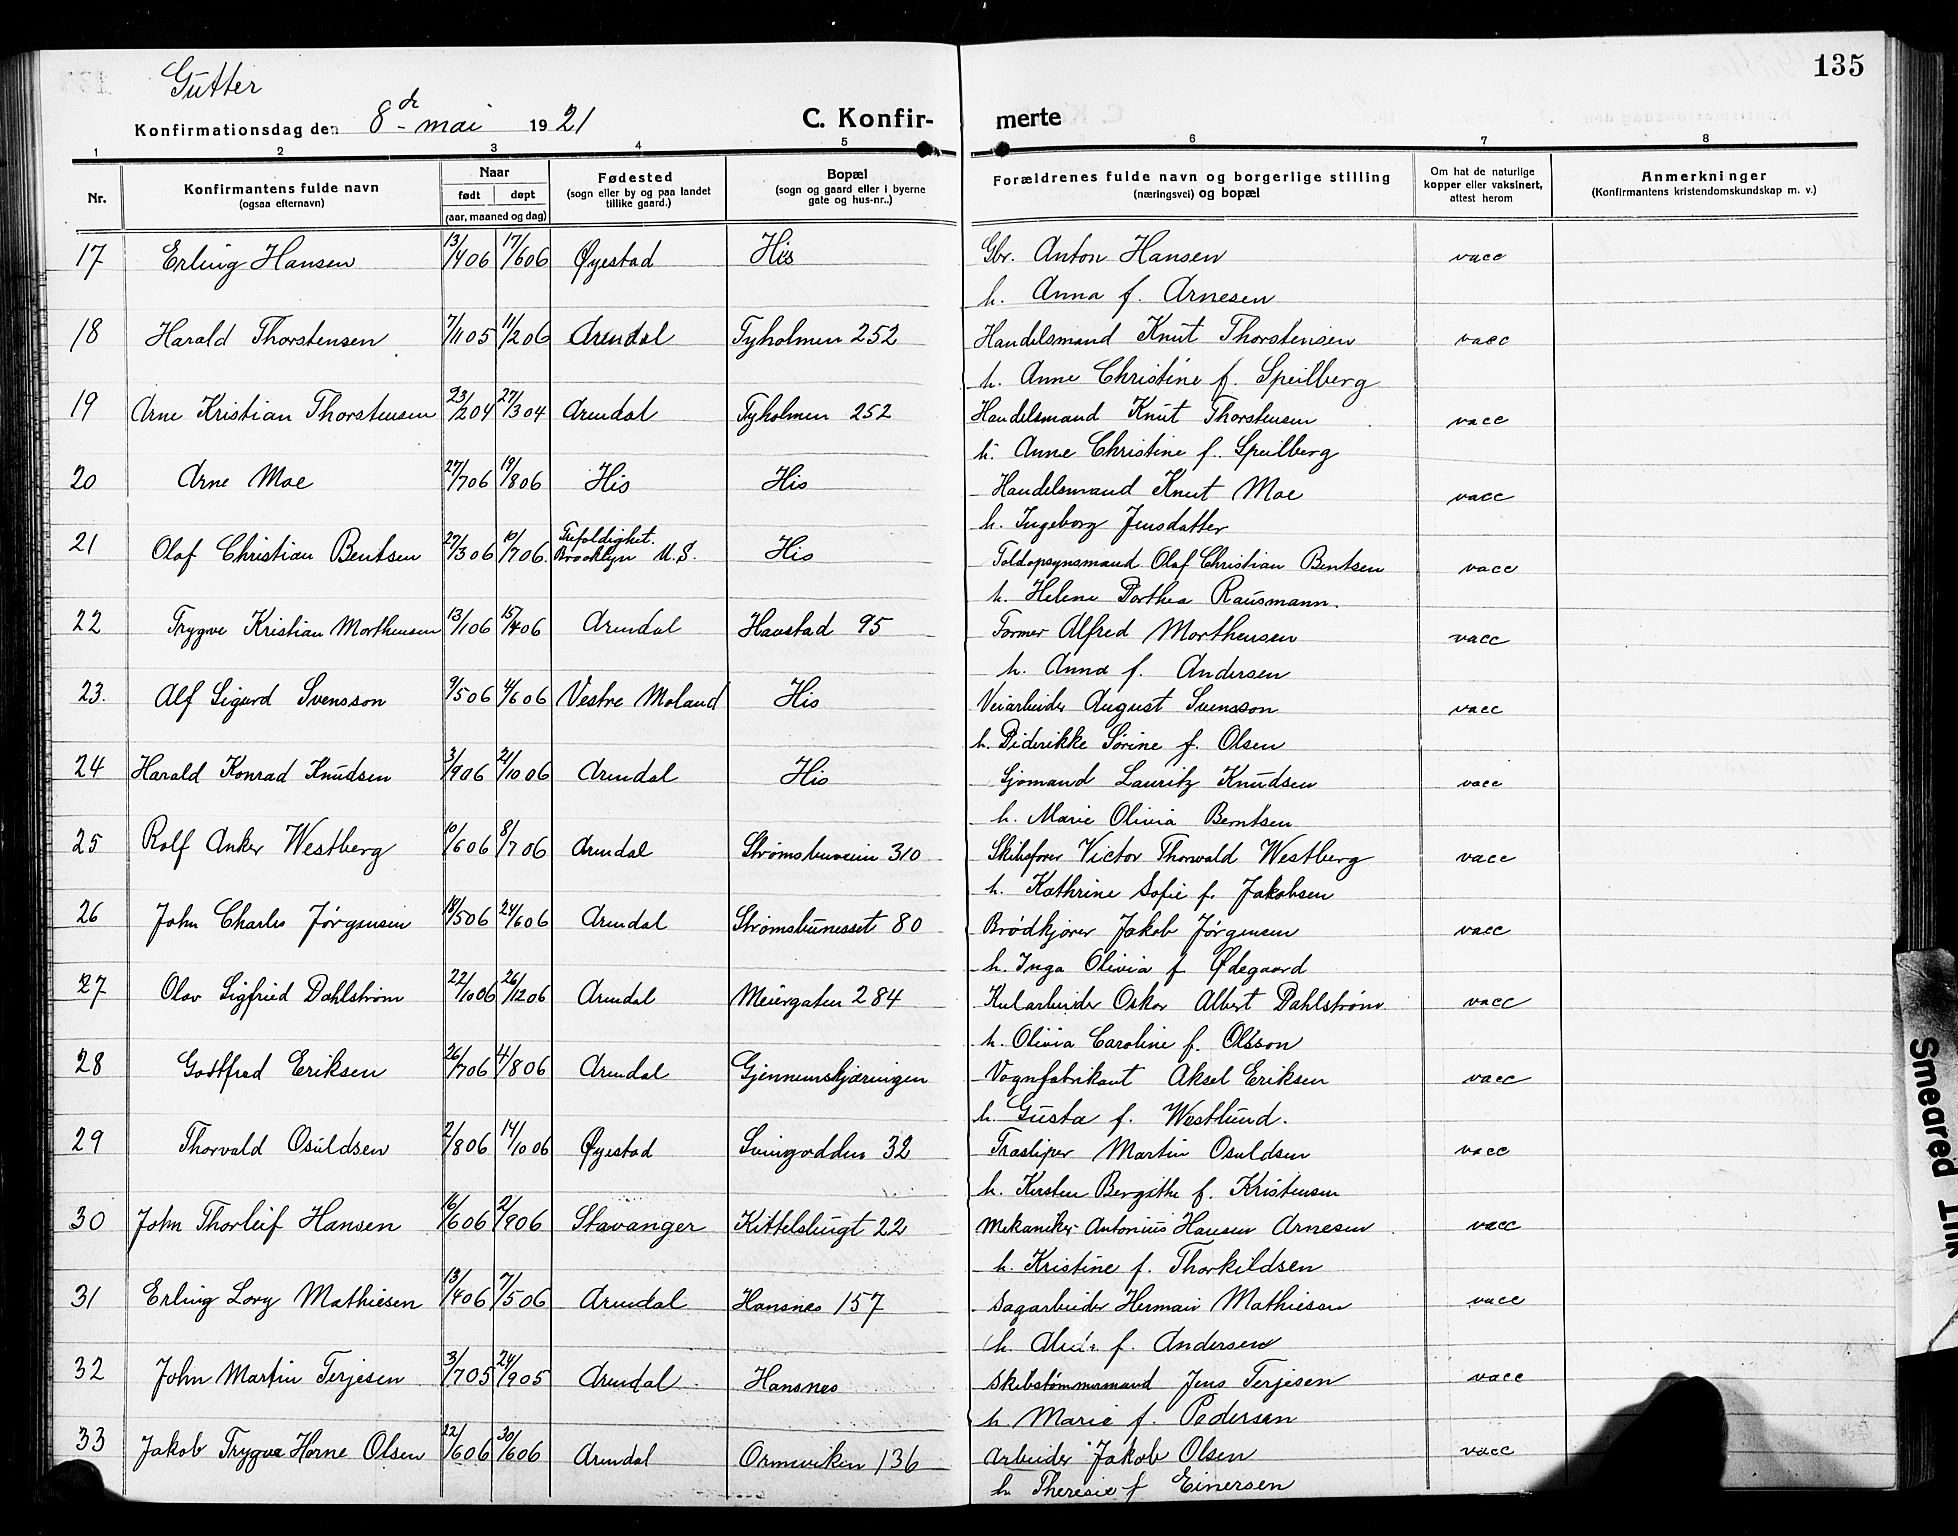 Gutter
135
Konfirmationsdag den 8de mai 1921
C. Konfirmerte
1 2 3 4 5 6 7 8
Nr.
Konfirmantens fulde navn
(ogsaa efternavn)
Naar
født døpt
(aar, maaned og dag)
Fødested
(sogn eller by og paa landet
tillike gaard.)
Bopæl
(sogn og gaard eller i byerne
gate og hus-nr..)
Forældrenes fulde navn og borgerlige stilling
(næringsvei) og bopæl
Om hat de naturlige
kopper eller vaksinert,
attest herom
Anmerkninger
(Konfirmantens kristendomskundskap m. v.)
17 Erling Hansen 13/4 06 17/6 06 Øyestad His Gbr. Anton Hansen vacc
h. Anna f. Arnesen
18 Harald Thorstensen 7/11 05 11/2 06 Arendal Tyholmen 252 Handelsmand Knut Thorstensen vacc
h. Anne Christine f. Speilberg
19 Arne Kristian Thorstensen 23/2 04 27/3 04 Arendal Tyholmen 252 Handelsmand Knut Thorstensen vacc
h. Anne Christine f. Speilberg
20 Arne Moe 27/7 06 19/8 06 His His Handelsmand Knut Moe vacc
h. Ingeborg Jensdatter
21 Olaf Christian Bentsen 27/3 06 10/7 06. Trefoldighet. Brooklyn U.S. His Toldopsynsmand Olaf Christian Bentsen vacc
h. Helene Dorthea Rausmann.
22 Trygve Kristian Morthensen 13/1 06 15/4 06 Arendal Havstad 95 Former Alfred Morthensen vacc
h. Anna f. Andersen
23. Alf Sigurd Svensson 9/5 06 4/6 06 Vestre Moland His Veiarbeider August Svensson vacc
h. Diderikke Sørine f. Olsen
24 Harald Konrad Knudsen 3/9 06 21/10 06 Arendal His Sjømand Lauritz Knudsen vacc
h. Marie Olivia Berntsen
25 Rolf Anker Westberg 10/6 06 8/7 06 Arendal Strømsbuveien 310 Skibsfører Victor Thorwald Westberg vacc
h. Kathrine Sofie f. Jakobsen
26 John Charles Jørgensen 18/5 06 24/6 06 Arendal Strømsbunesset 80 Brødkjører Jakob Jørgensen vacc
h. Inga Olivia f. Ødegaard
27 Olav Sigfried Dahlstrøm 22/10 06 26/12 06 Arendal Meiergaten 284 Kularbeider Oskar Albert Dahlstrøm vacc
h. Olivia Caroline f. Olsson
28 Godtfred Eriksen 26/7 06 4/8 06 Arendal Gjennemskjæringen Vognfabrikant Aksel Eriksen vacc
h. Gusta f. Westlund.
29 Thorvald Osuldsen 2/8 06 14/10 06 Øyestad Svingodden 32 Træsliper Martin Osuldsen vacc
h. Kirsten Bergithe f. Kristensen
30 John Thorleif Hansen 16/6 06 2/9 06 Stavanger Kittelsbugt 22 Mekaniker Antonius Hansen Arnesen vacc
h. Kristine f. Thorkildsen
31 Erling Lovy Mathiesen 13/4 06 7/5 06 Arendal Hansnes 157 Sagarbeider Herman Mathiesen vacc
h. f. Andersen
32 John Martin Terjesen 3/7 05 24/9 05 Arendal Hansnes Skibstømmermand Jens Terjesen vacc
h. Marie f. Pedersen
33 Jakob Trygve Horne Olsen 22/6 06 30/6 06 Arendal Ormeviken 136 Arbeider Jakob Olsen vacc
h. Theresie f Einersen
Smeared Ink